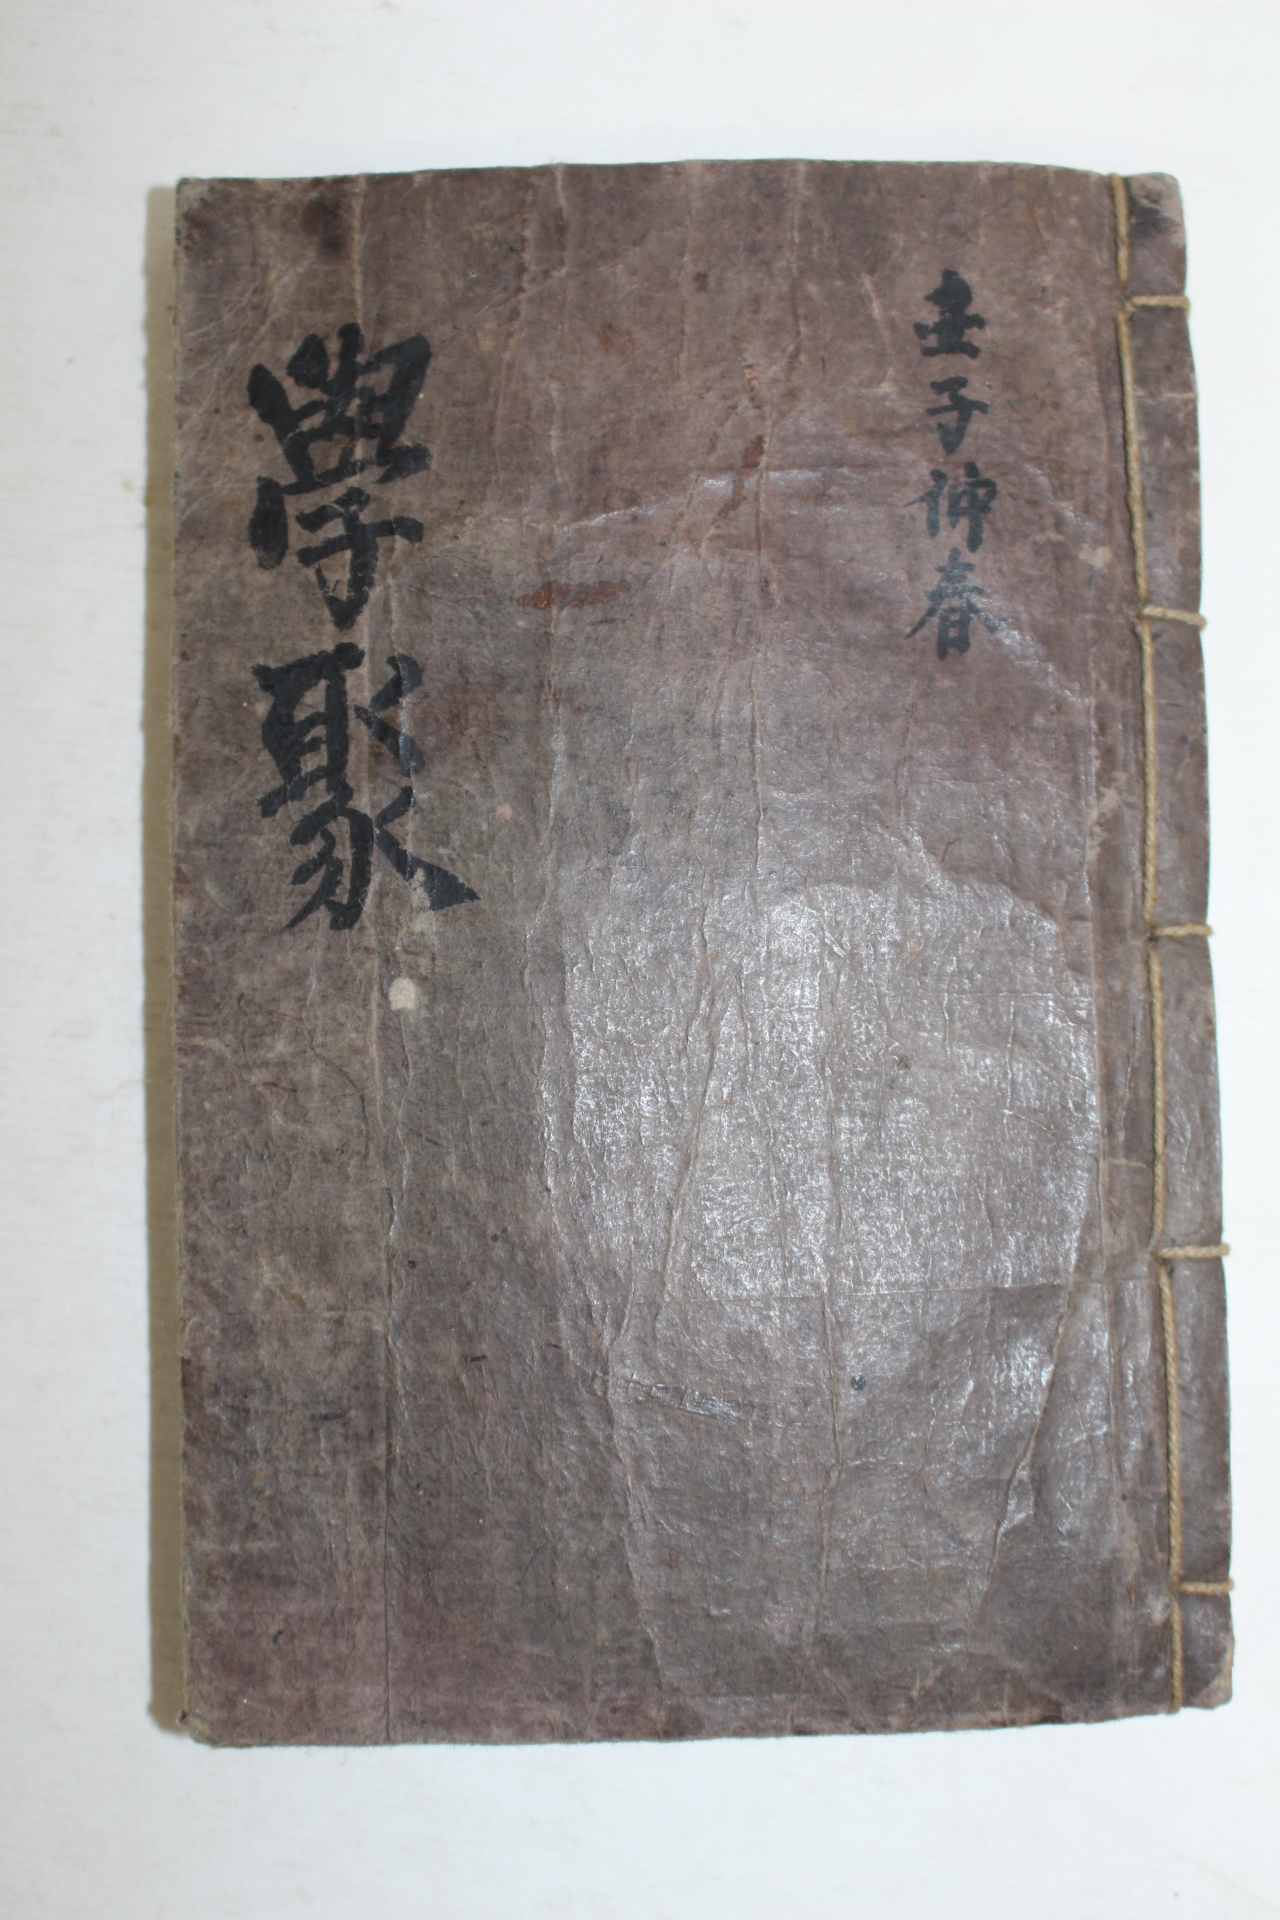 壬子仲春
學聚